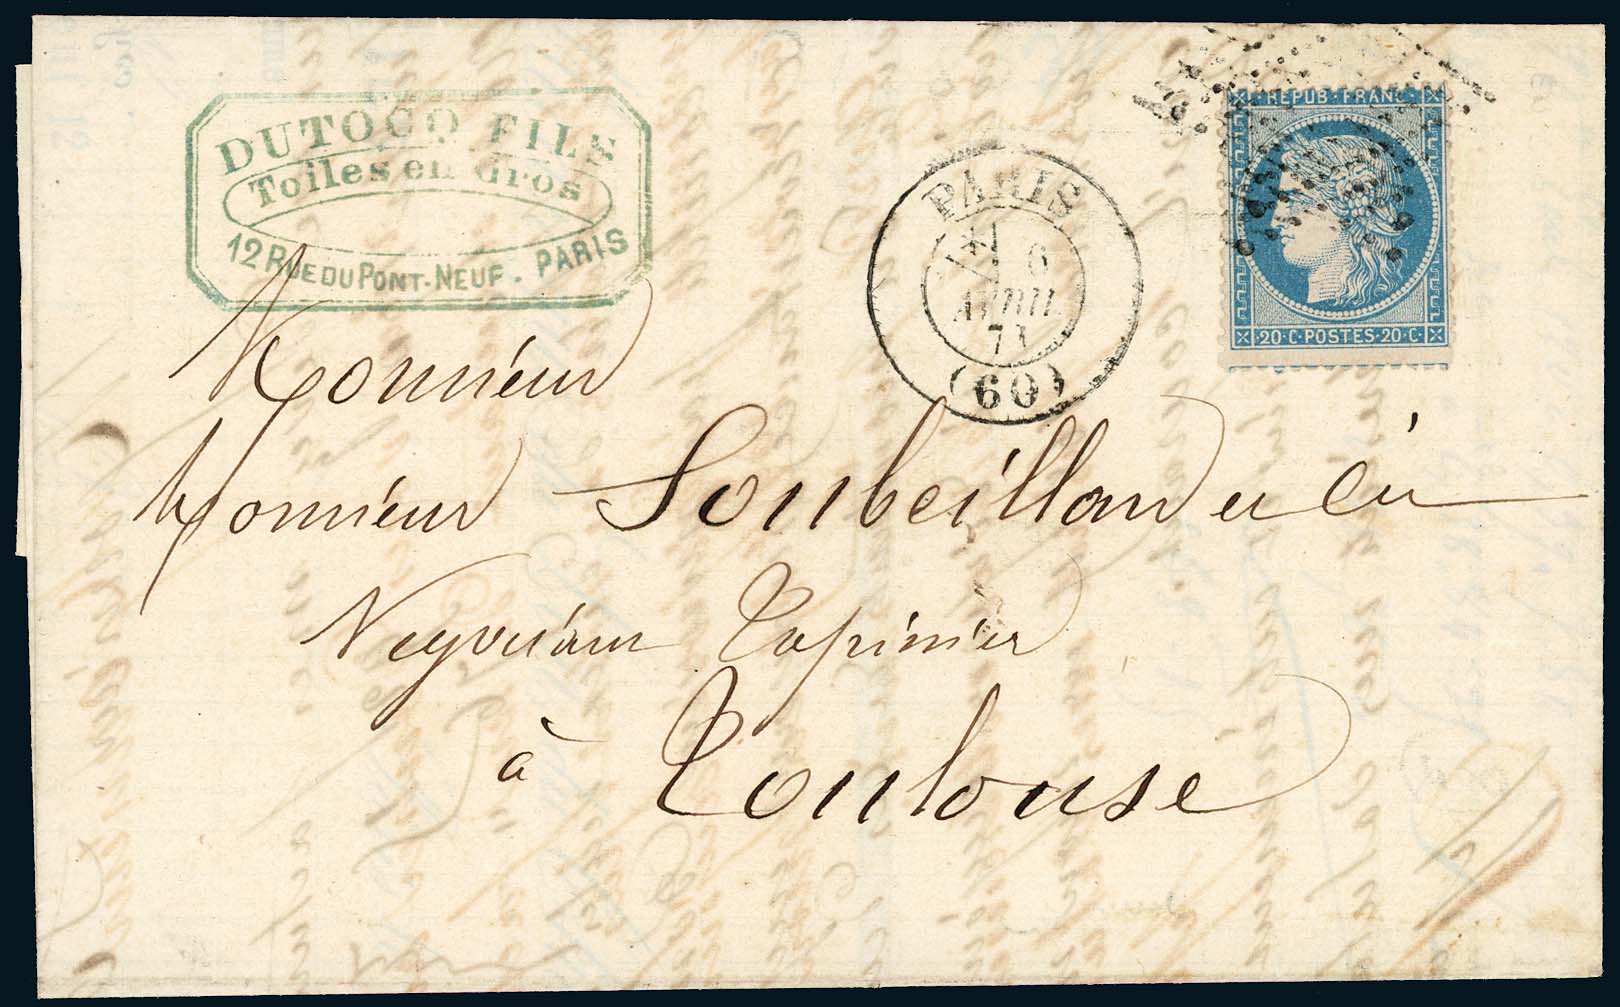 DUTOCQ FILS
Toiles en Gros
12 RUE DU PONT-NEUF. PARIS
PARIS
6
AVRIL
71
(60)
REPUB·FRANC·
20·C·POSTES·20·C·
Monsieur
Monsieur Soubeillan et Cie
Negociant Tapissier
à Toulouse